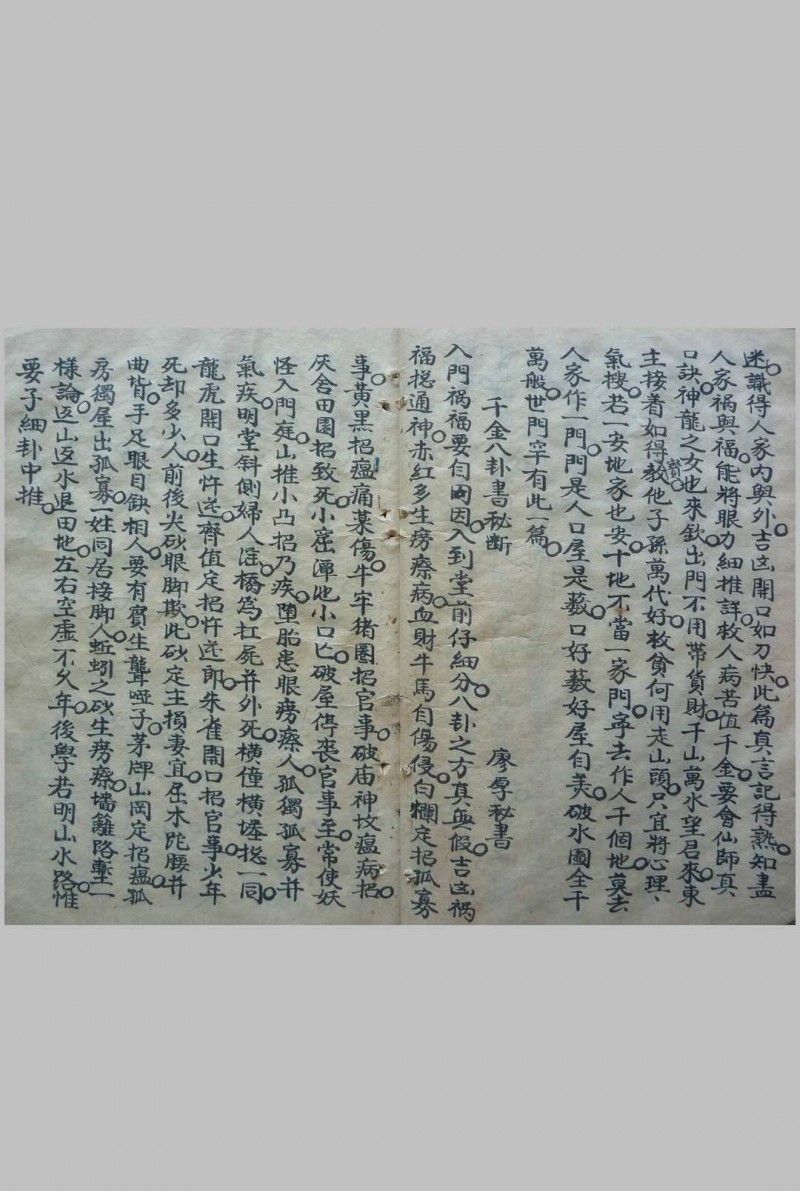 迷。識得人家內與外。吉凶開口如刀快。此篇真言記得熟。知盡
人家禍與福。能將眼力細推詳。救人病苦值千金。要會仙師真
口訣。神龍之女也來欽。出門不用帶貨財。千山萬水望君來。東
主接着如得寶。教他子孫萬代好。救貧何用走山頭。只宜將心理、
氣搜。若一安地家也安。十地不當一家門。寧去作人千個地。莫去
人家作一門。門是人口屋是藪。口好藪好屋自美。破水圖全千
萬般。世門罕有此一篇。
千金八卦書秘斷 廖厚秘書
入門禍福要自因。入到堂前仔細分。八卦之方真無假。吉凶禍
福揔通神。赤紅多生癆瘵病。血財牛馬自傷侵。白爛定招孤寡
事。黃黑招瘟痛藥傷。牛牢猪圈招官事。破庙神坟瘟病招。
灰舍田園招致死。小窰潭池小口亡。破屋停丧官事至。常使妖
怪入門庭。山推小凸招乃疾。墮胎患眼癆瘵人。孤獨孤寡并
氣疾。明堂斜側婦人淫。橋為扛屍并外死。橫僮橫墩揔一同。
龍虎開口生忤逆。齊值定招忤逆郎。朱雀開口招官事。少年
死却多少人。前後尖砂眼脚欺。此砂定主損妻宜。岳木跎腰并
曲背。手足眼目缺相人。要有賓生聾啞子。茅牌山岡定招瘟。孤
房獨屋出孤寡。一姓同居接脚人。蚯蚓之砂生癆瘵。墻籬路塹一
樣論。返山返水退田地。左右空虛不久年。後學若明山水路。惟
要子細卦中推。